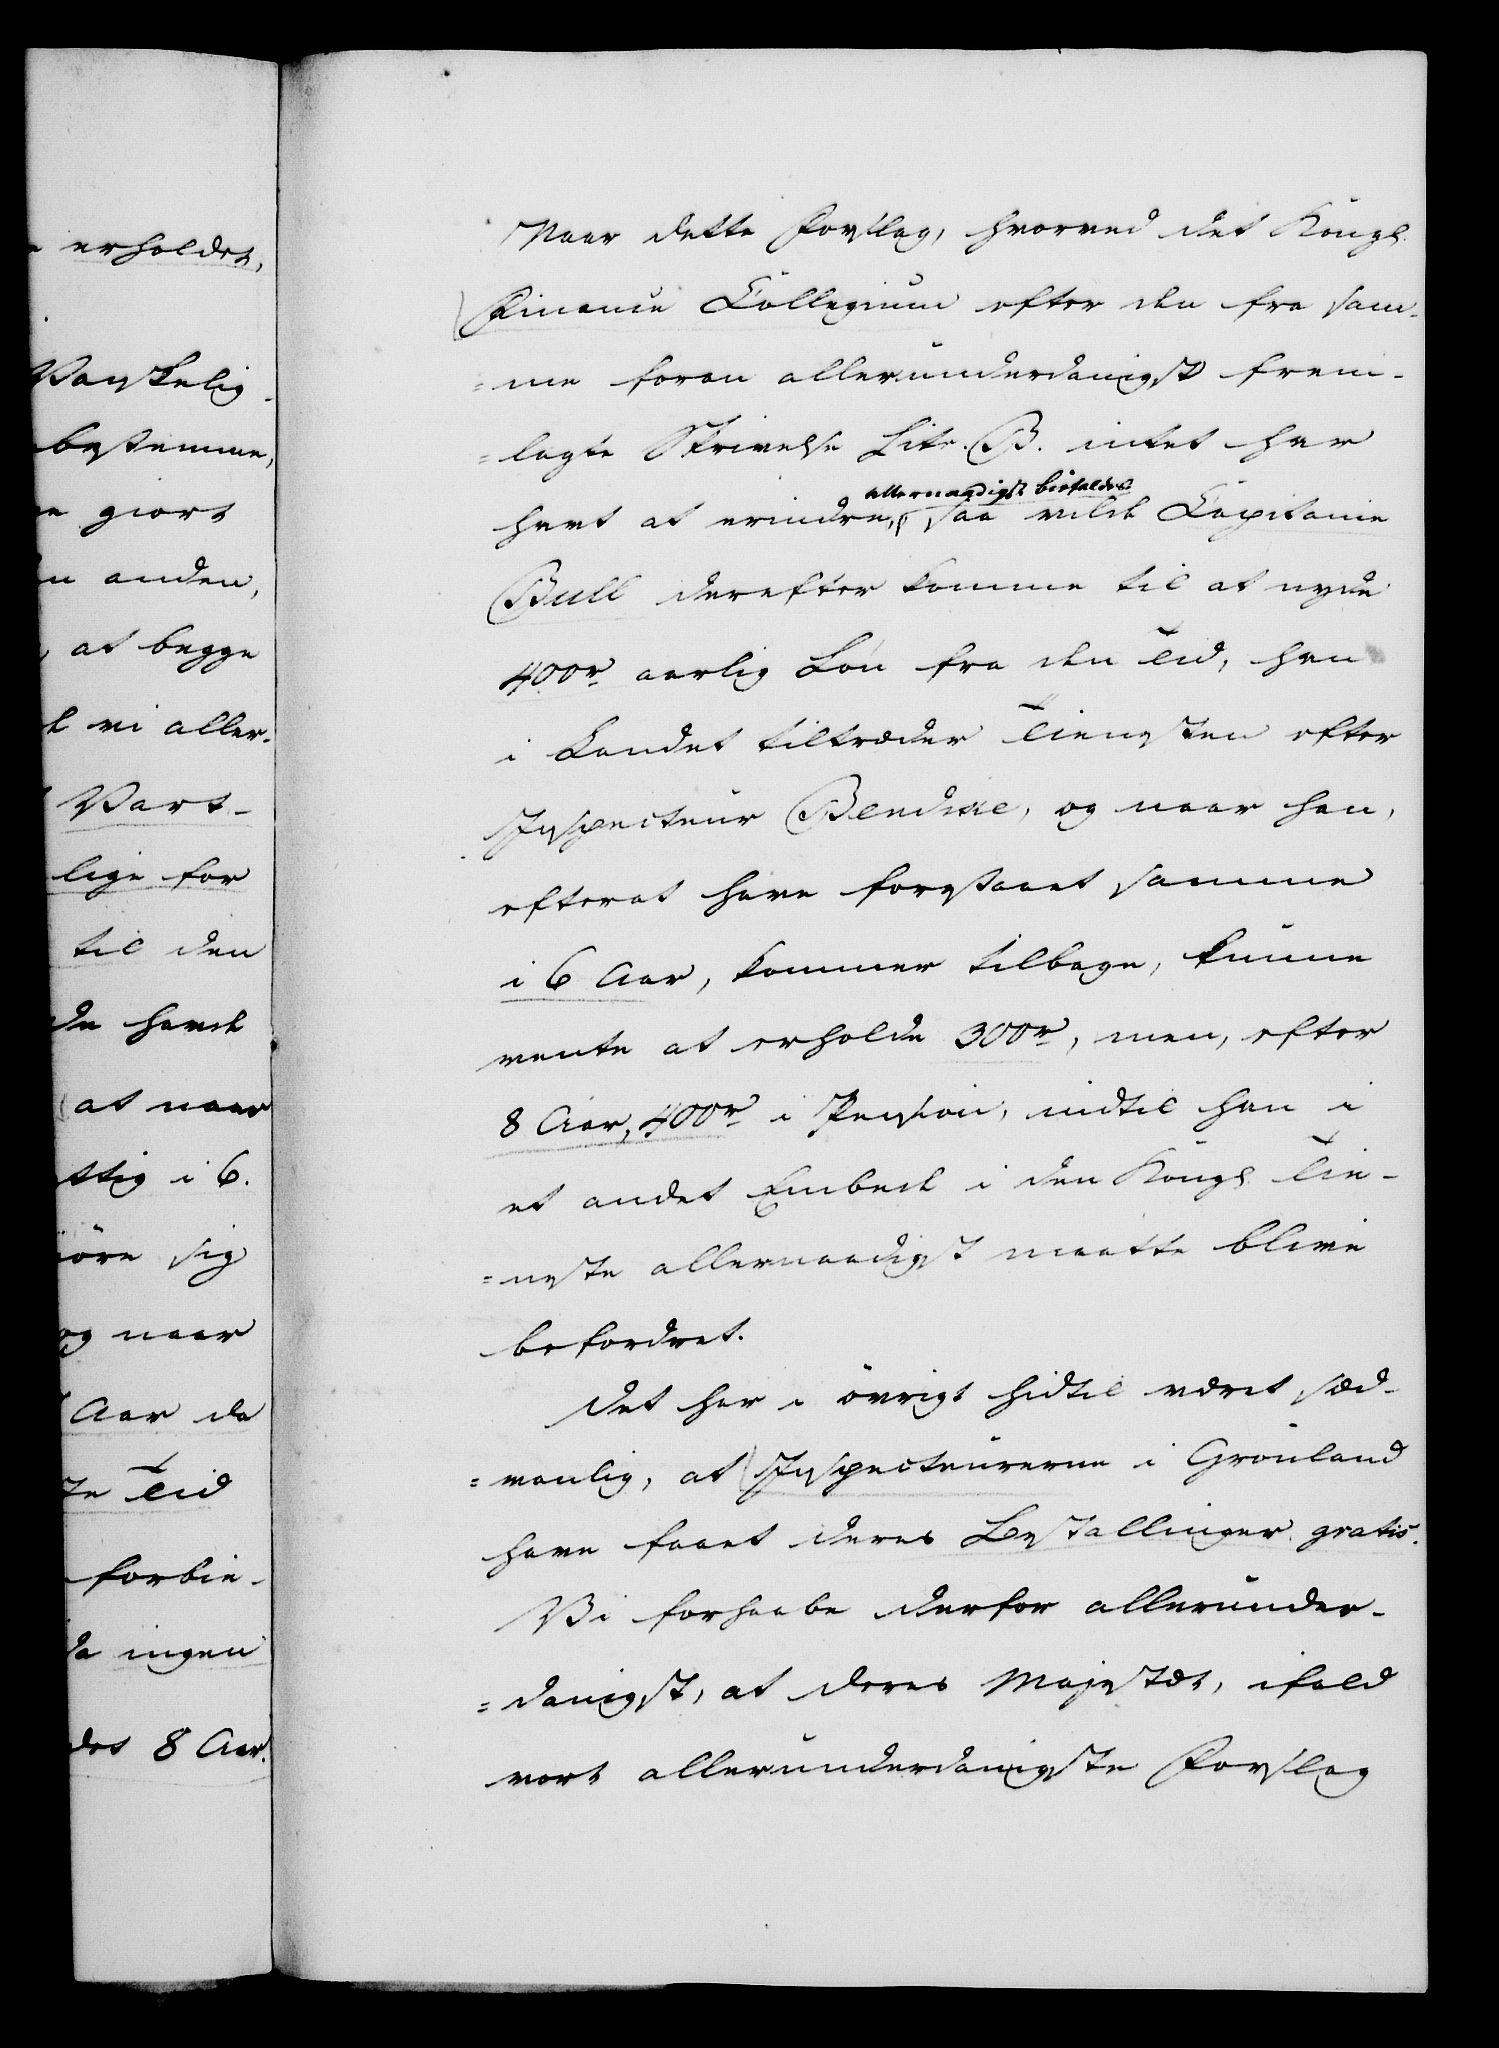 erholdes,
Vanskelig-
bestemme,
giort
anden,
at begge
vi aller-
Vort
lige for
til den
havde
at naar
ttig i 6.
øre sig
og naar
Aar da
te Tid
forbin-
da ingen
des 8 Aar.
Naar dette Forslag, hvorved det Kongl.
Finance Collegium efter den fra sam-
=me foran allerunderdanigst frem-
=lagte Skrivelse Litr. B. intet har
allernaadigst bifaldes
havt at erindre, saa vilde Capitaine
Bull derefter komme til at nyde
400r aarlig Løn fra den Tid, han
i Landet tiltræder Tiensten efter
Inspecteur Bendixe, og naar han,
efterat have forestaaet samme
i 6 Aar, kommer tilbage, kunne
vente at erholde 300r, men, efter
8 Aar, 400r i Pension, indtil han i
et andet Embede i den Kongl. Tie-
=neste allernaadigst maatte blive
befordret.
Det har i øvrigt hidtil været sæd-
=vanlig, at Inspecteurerne i Grønland
have faaet deres Bestallinger gratis.
Vi forhaabe derfor allerunder-
=danigst, at Deres Majestæt, ifald
vort allerunderdanigste Forslag